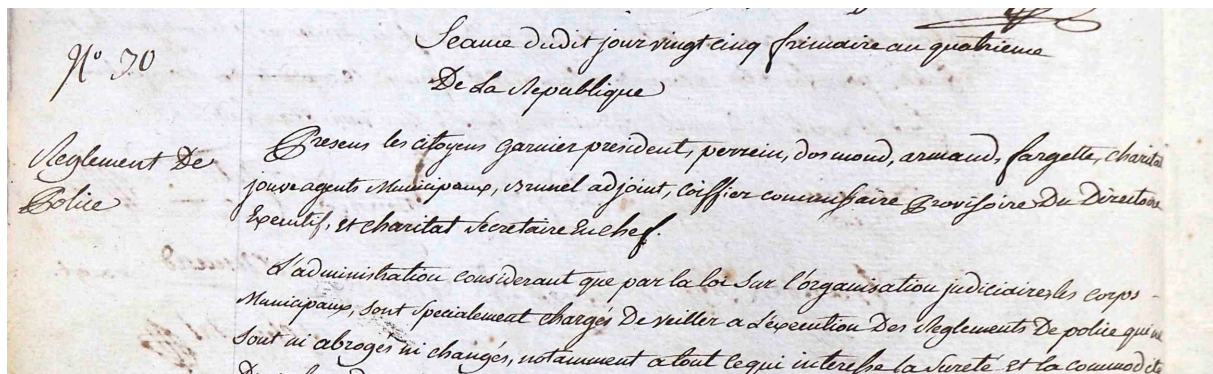 Seance dudit jour vingt cinq frimaire an quatrieme
De La Republique
N° 30
Reglement De
Police
Presens les citoyens garnier president, perrein, dosmond, armand, fargette, charitat
jouve agents Municipaux, Brunel adjoint, Coiffier commissaire Provisoire Du Directoire
Executif, et charitat Secretaire En chef.
L'administration considerant que par la loi sur l'organisation judiciaire, les corps
Municipaux, sont specialement chargés De veiller a L'execution Des Reglements De police qui ne
sont ni abrogés ni changés, notamment a tout ce qui interesse la sureté et la commodité